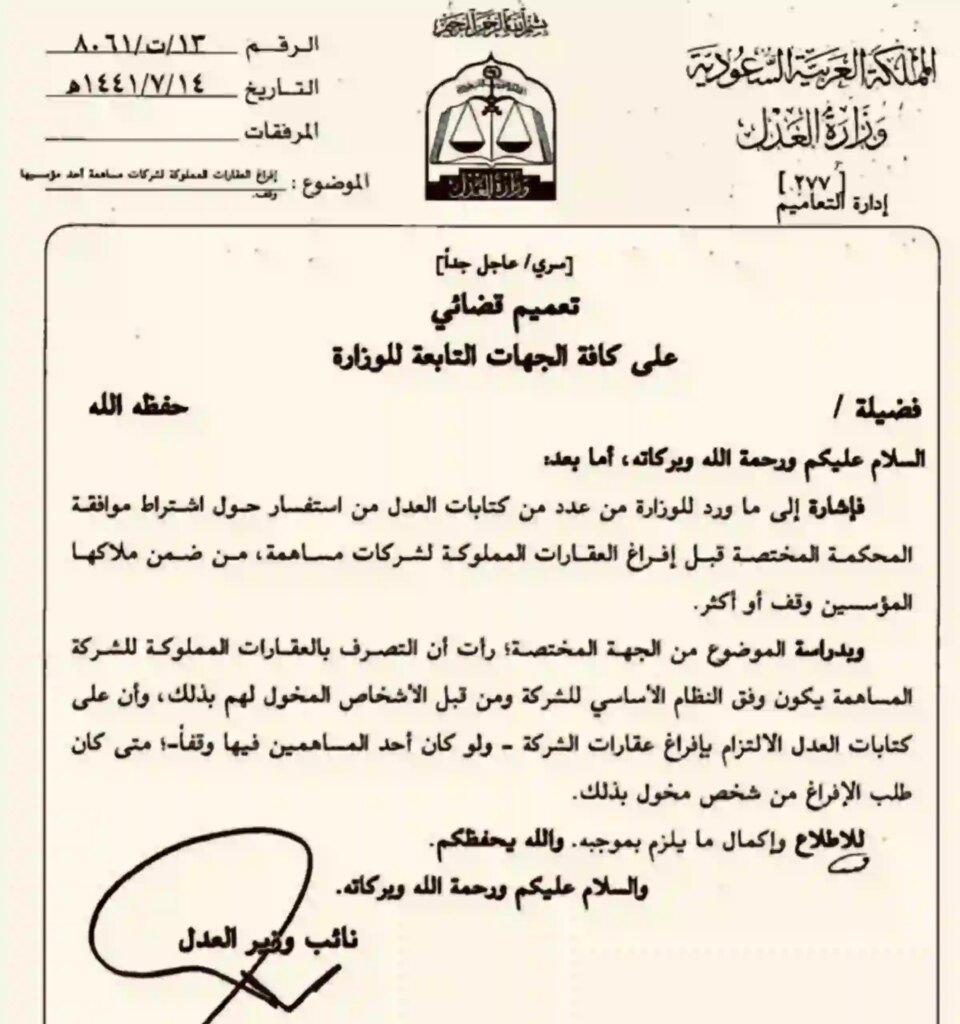 بسم الله الرحمن الرحيم
المملكة العربية السعودية
وزارة العدل
[٢٧٧]
إدارة التعاميم
وزارة العدل
الرقم ١٣/ت/٨٠٦١
التاريخ ١٤٤١/٧/١٤هـ
المرفقات
الموضوع : إفراغ العقارات المملوكة لشركات مساهمة أحد مؤسسيها
وقف.
[سري/ عاجل جداً]
تعميم قضائي
على كافة الجهات التابعة للوزارة
فضيلة / حفظه الله
السلام عليكم ورحمة الله وبركاته، أما بعد:
فإشارة إلى ما ورد للوزارة من عدد من كتابات العدل من استفسار حول اشتراط موافقة
المحكمة المختصة قبل إفراغ العقارات المملوكة لشركات مساهمة، من ضمن ملاكها
المؤسسين وقف أو أكثر.
وبدراسة الموضوع من الجهة المختصة؛ رأت أن التصرف بالعقارات المملوكة للشركة
المساهمة يكون وفق النظام الأساسي للشركة ومن قبل الأشخاص المخول لهم بذلك، وأن على
كتابات العدل الالتزام بإفراغ عقارات الشركة - ولو كان أحد المساهمين فيها وقفاً-؛ متى كان
طلب الإفراغ من شخص مخول بذلك.
للاطلاع وإكمال ما يلزم بموجبه. والله يحفظكم.
والسلام عليكم ورحمة الله وبركاته.
نائب وزير العدل